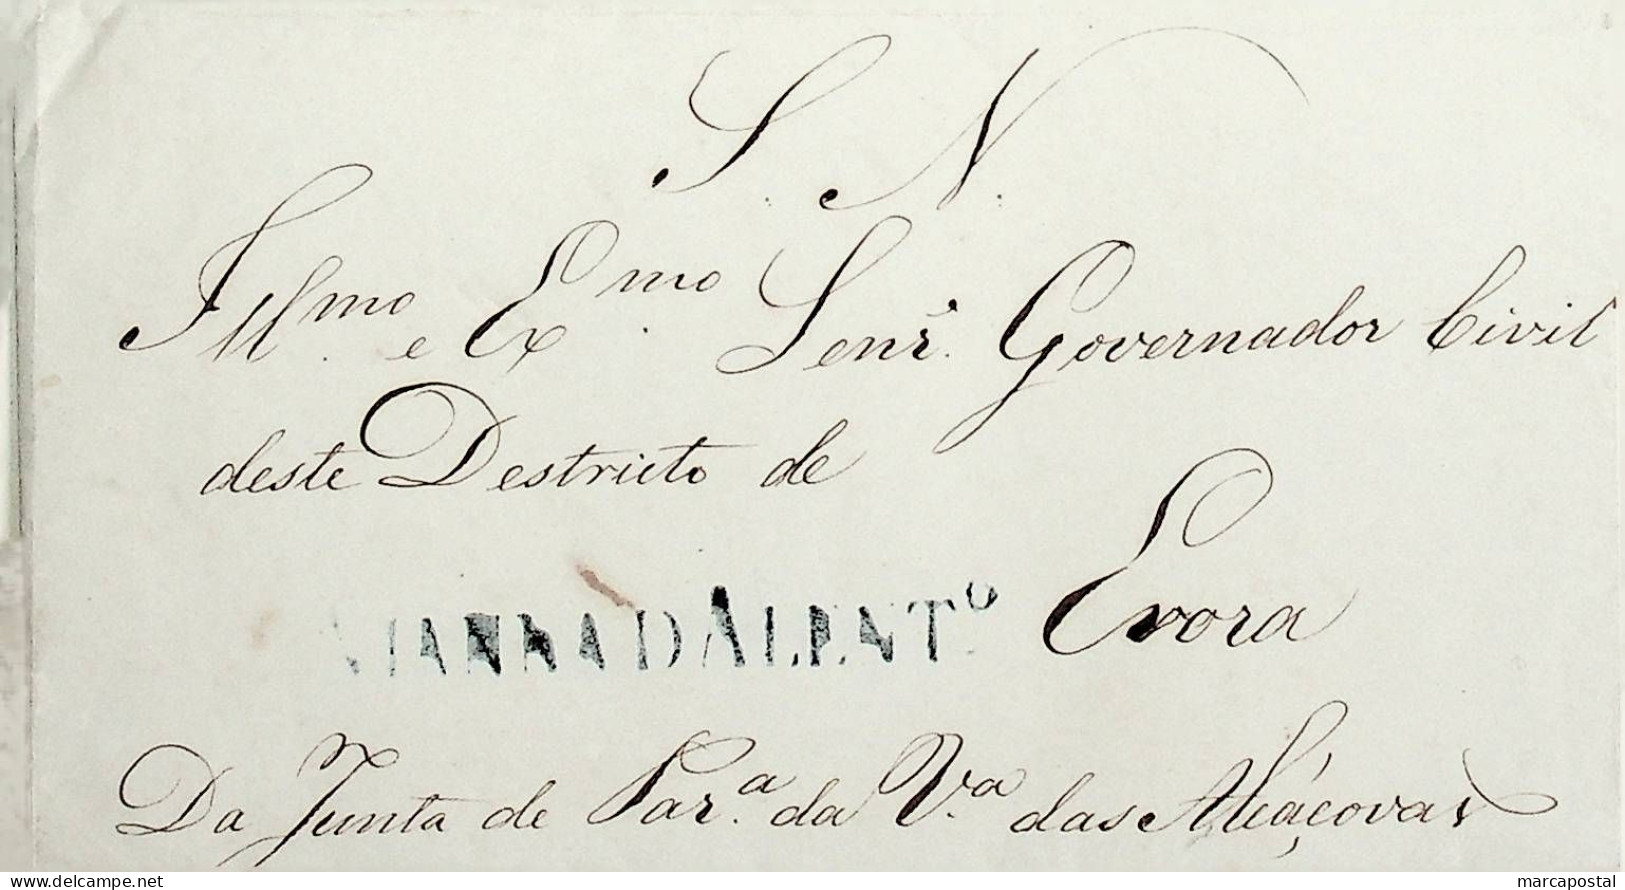 S. N.
Illmo. e Exmo. Senr. Governador Civil
deste Destricto de
Evora
VIANNA D ALENTº
Da Junta de Par.ª da V.ª das Alcáçovas
delcampe.net
marcapostal